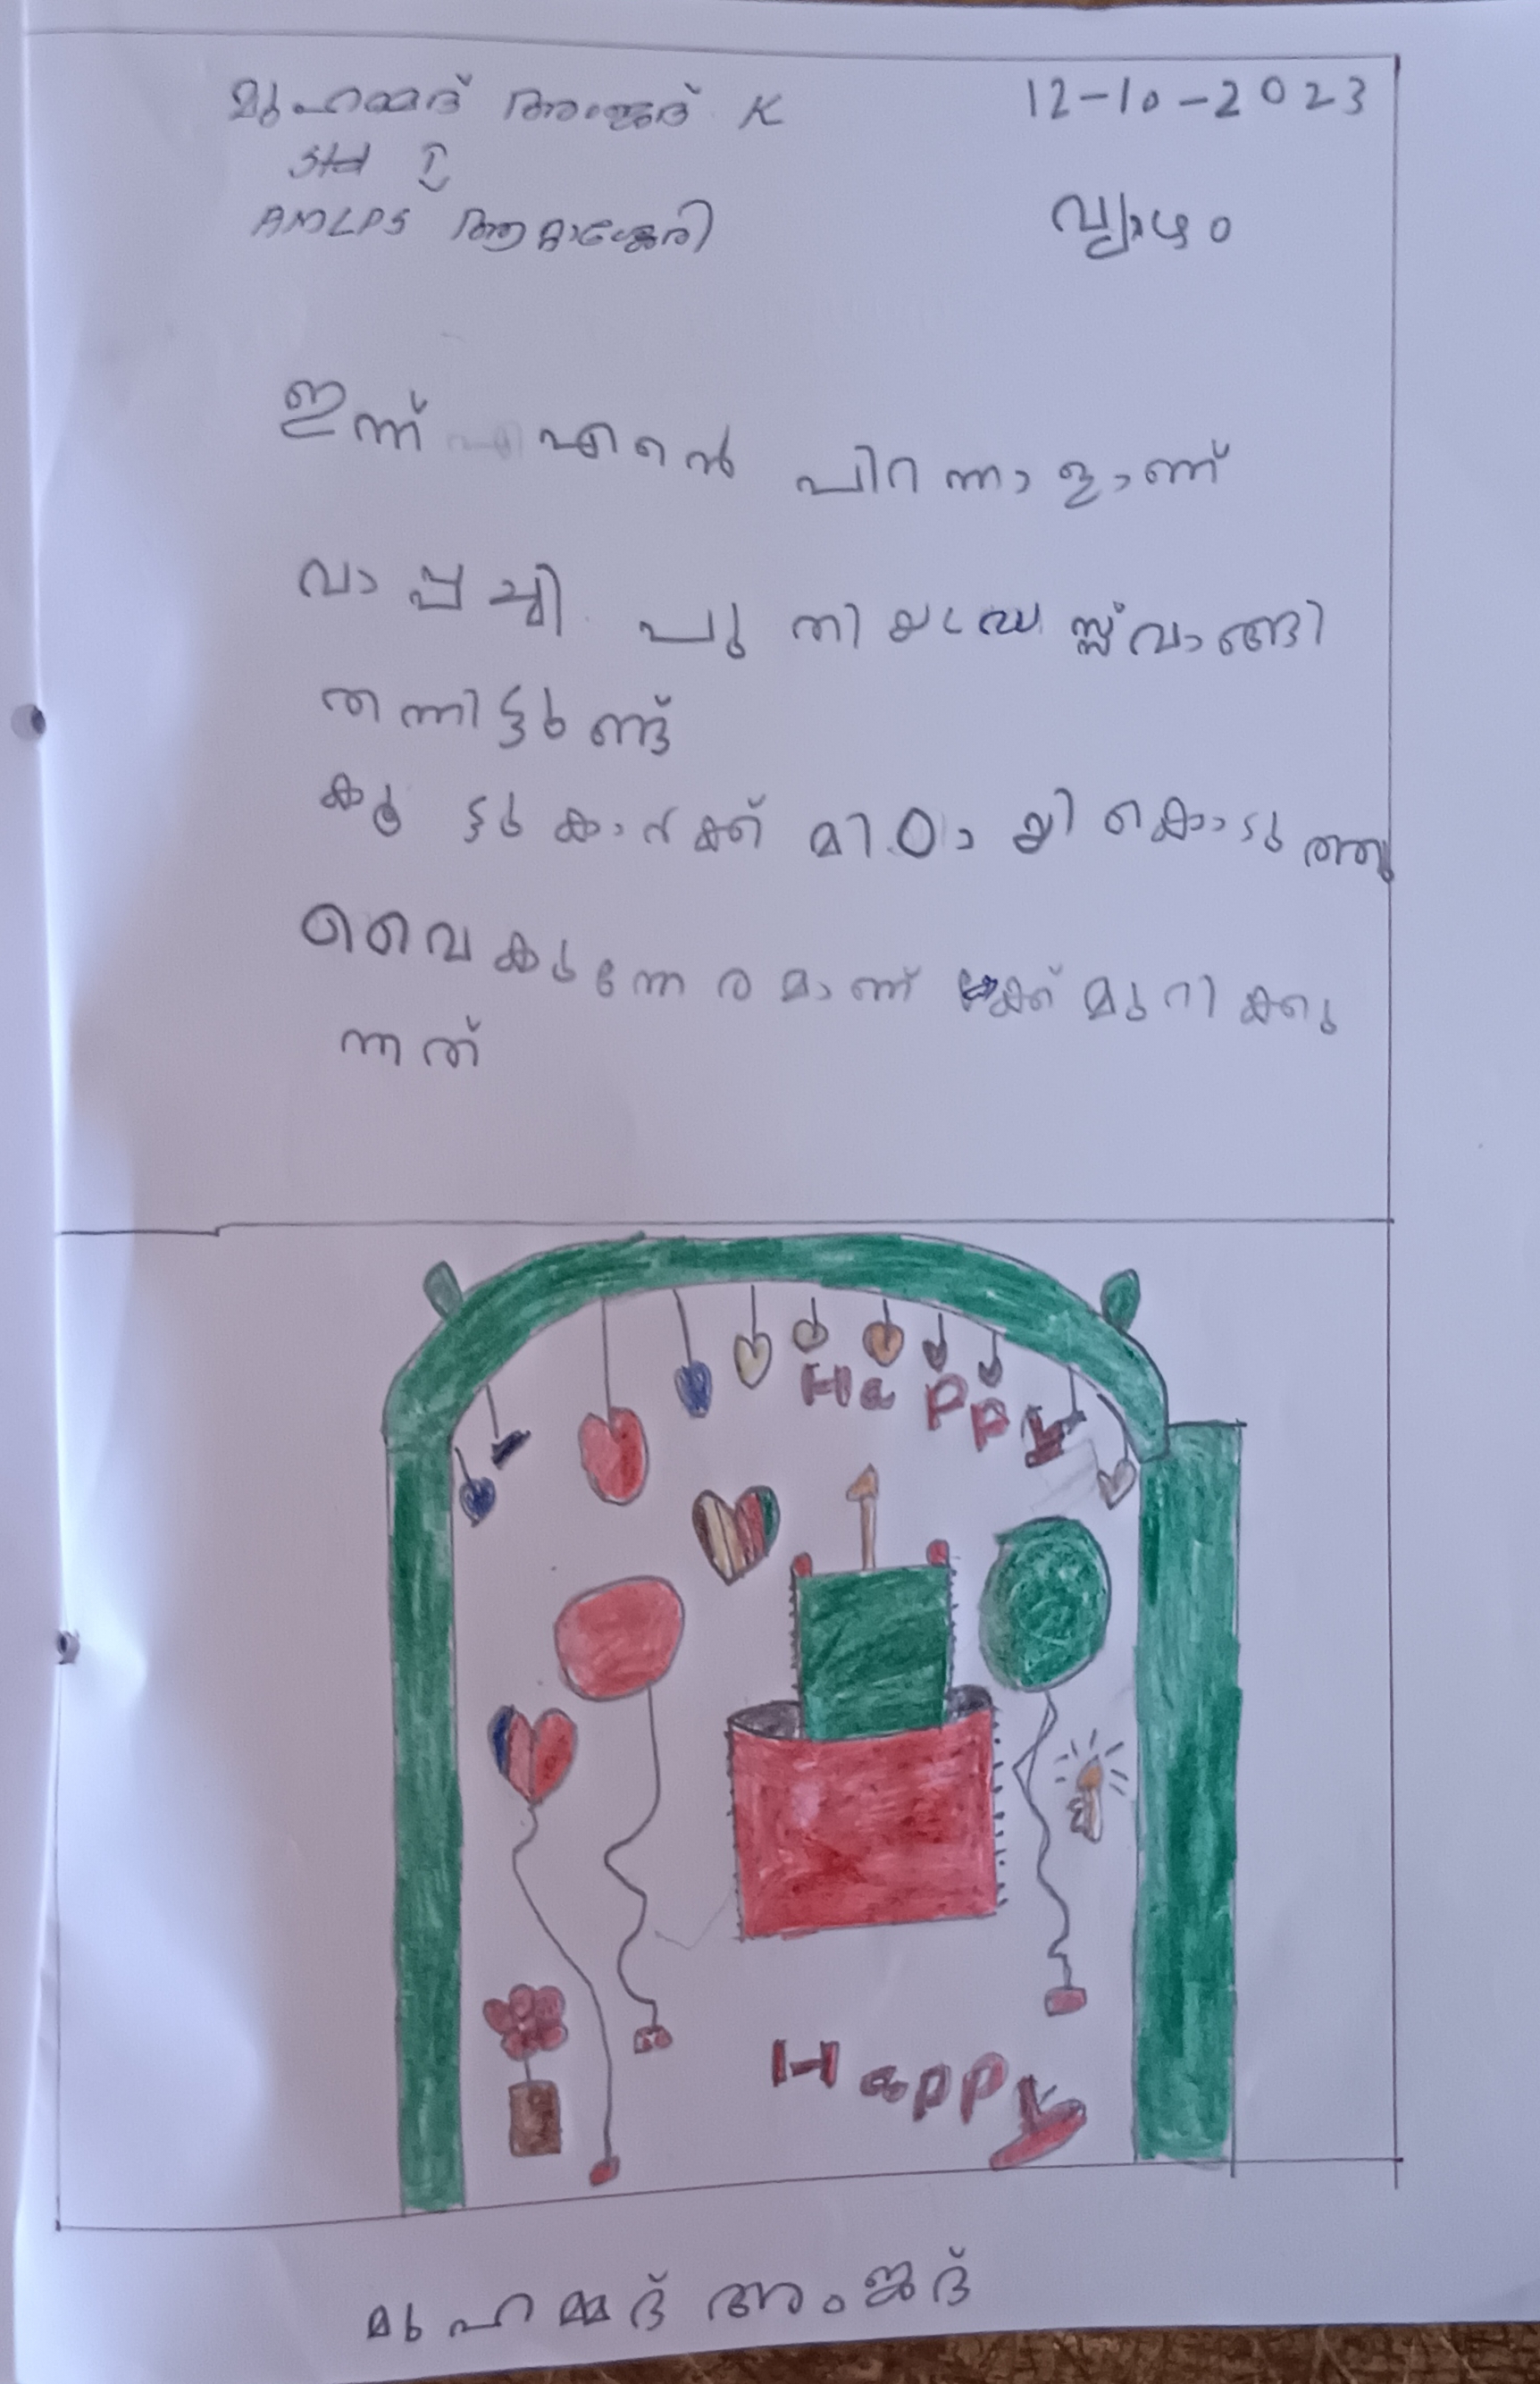 മുഹമ്മദ് അംജദ് K
12-10-2023
std I
വ്യാഴം
AMLPS ആറ്റാശ്ശേരി
ഇന്ന് എൻെ പിറന്നാളാണ്
വാപ്പച്ചി പുതിയ ഡ്രസ്സ് വാങ്ങി
തന്നിട്ടുണ്ട്
കൂട്ടുകാർക്ക് മിഠായി കൊടുത്തു
വൈകുന്നേരമാണ് കേക്ക് മുറിക്കു
ന്നത്
Happy
Happy
മുഹമ്മദ് അംജദ്